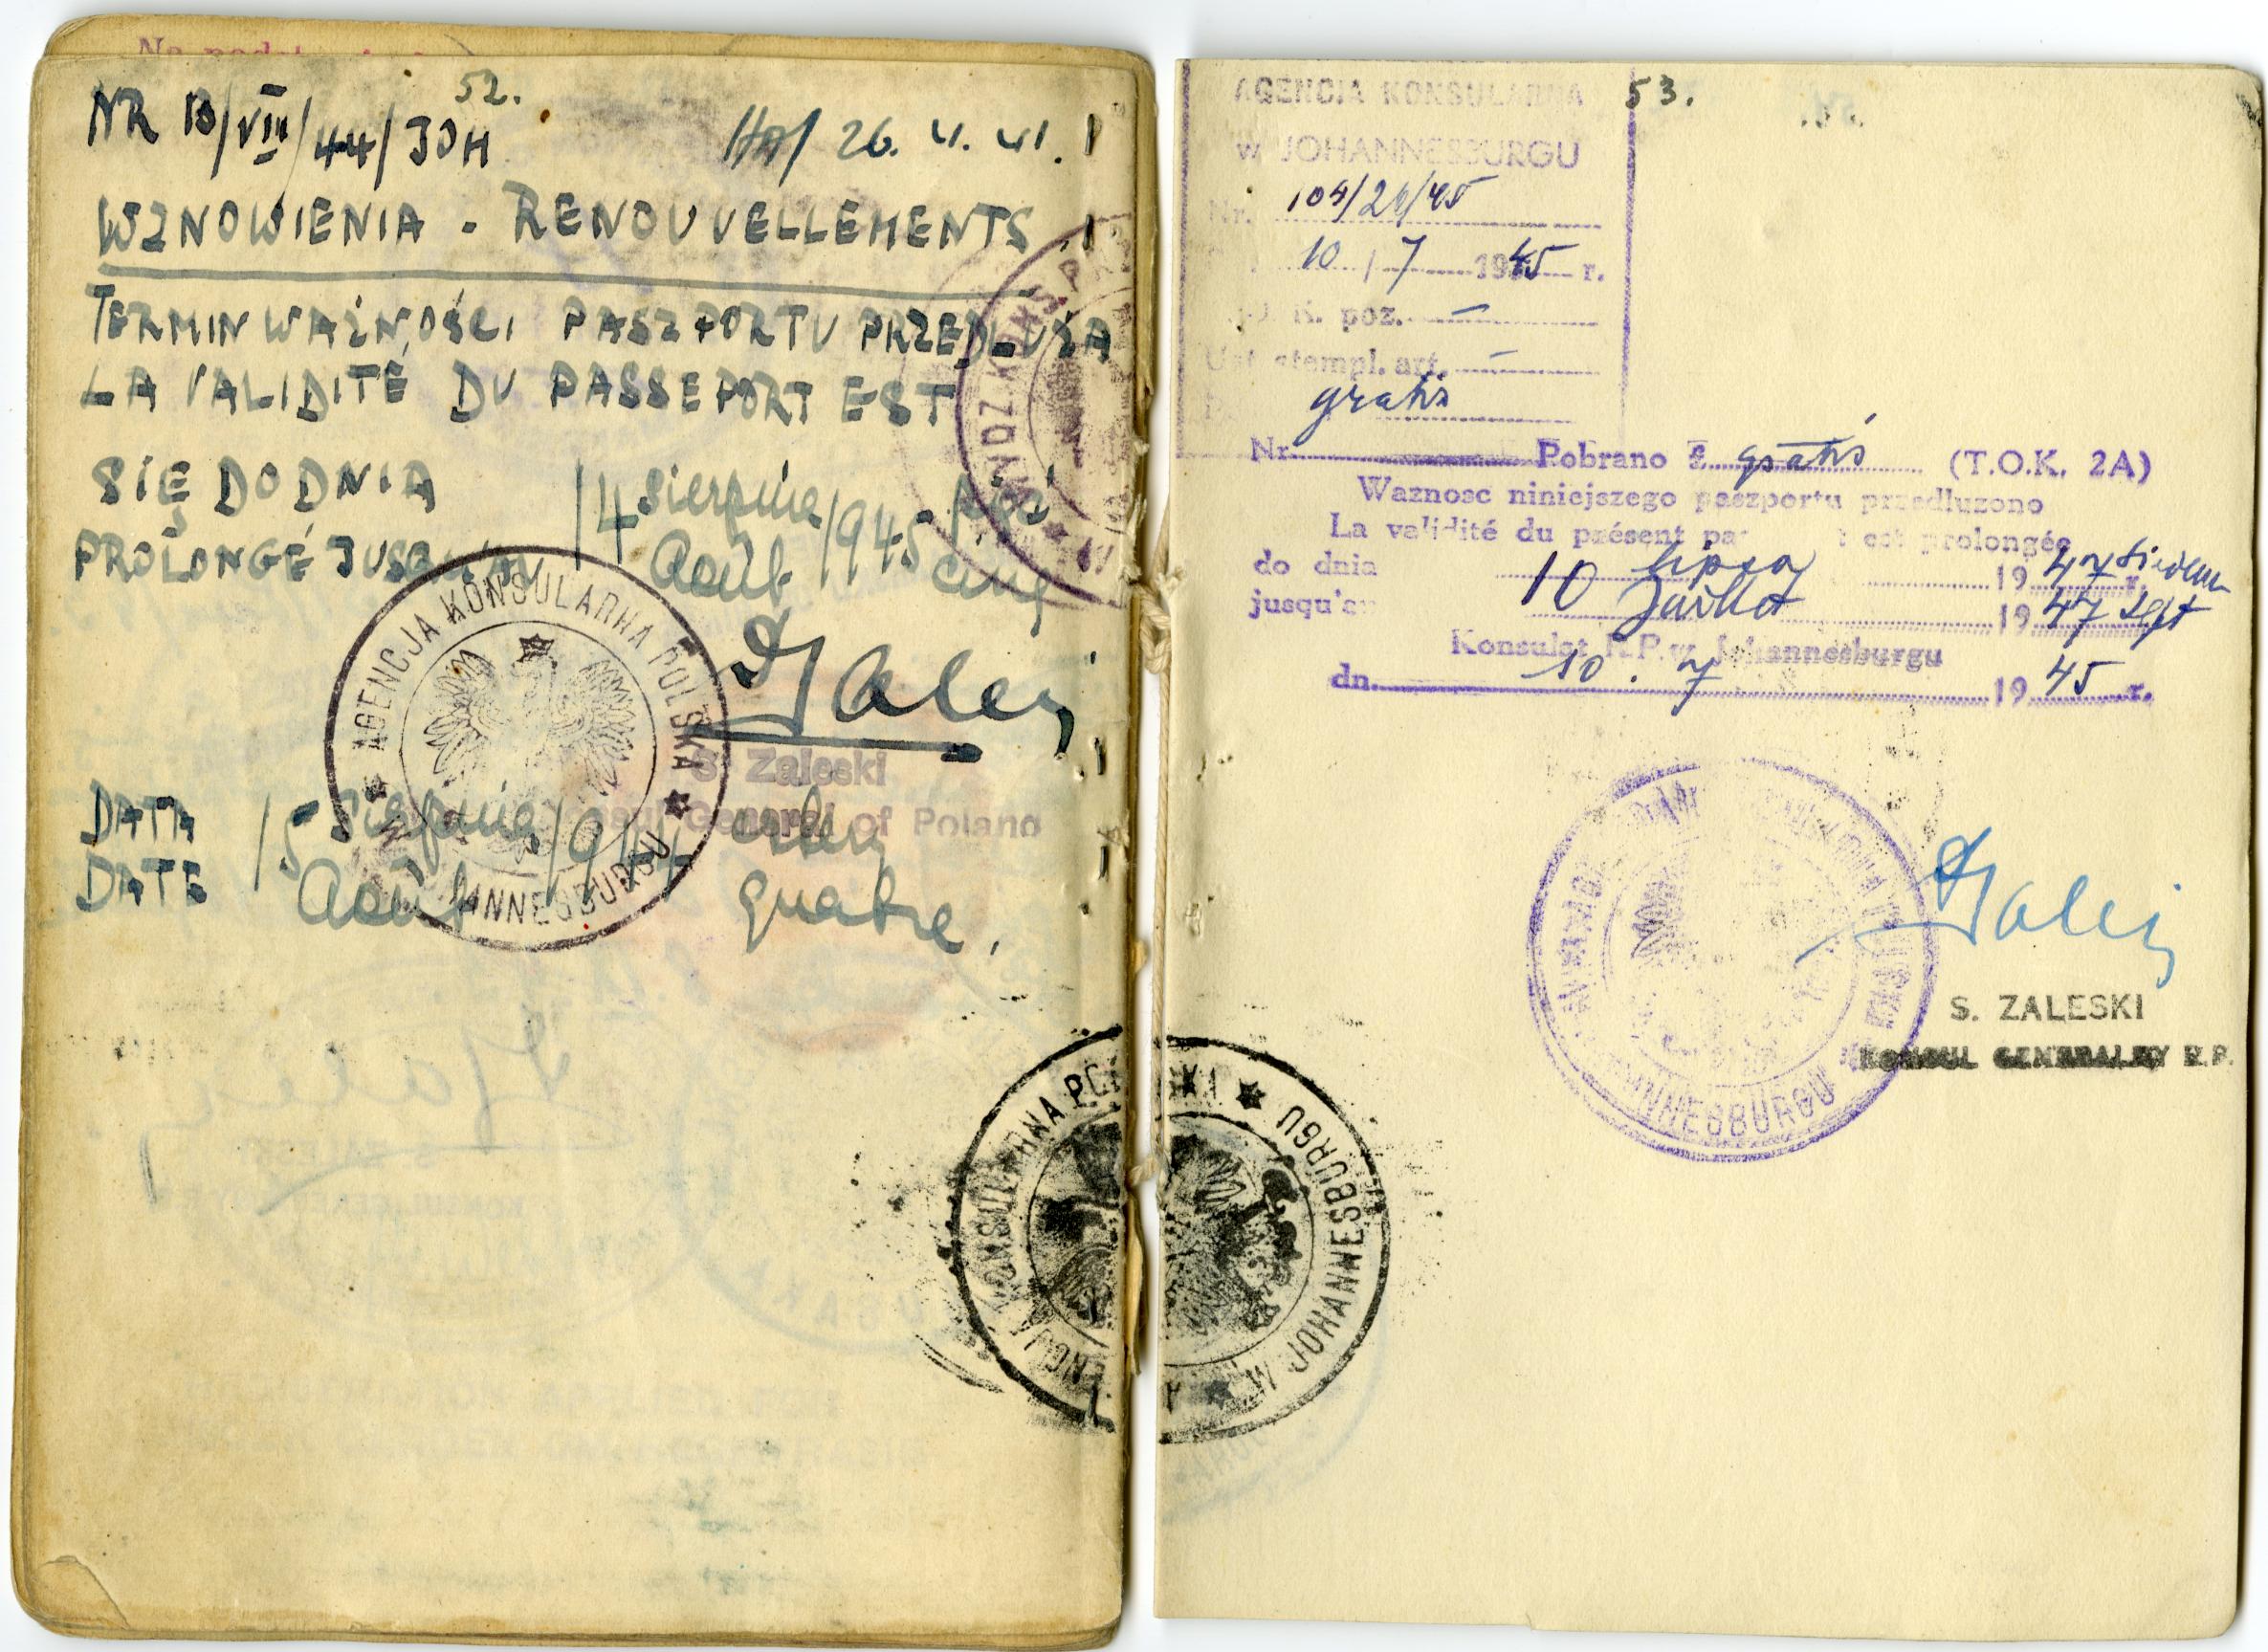 52.
NR 13/VIII/44/JOH
26.
WZNOWIENIA - RENOUVELLEMENTS
TERMIN WAŻNOŚCI PASZPORTU PRZEDŁUŻA
LA VALIDITÉ DU PASSEPORT EST
SIĘ DO DNIA 14 sierpnia 1945 pięć
PROLONGÉ JUSQU'AU Août cinq
AGENCJA KONSULARNA POLSKA
JOHANNESBURGU
S. Zaleski
Consul General of Poland
DATA 15 sierpnia 1944 cztery
DATE Août quatre,
KONSULARNA
W JOHANNESBURGU
53.
AGENCJA KONSULARNA
w JOHANNESBURGU
Nr. 104/26/45
10 / 7 1945 r.
K. poz. —
Ust. stempl. art. —
gratis
Nr. Pobrano £ gratis (T.O.K. 2A)
Waznosc niniejszego paszportu przedluzono
La validité du présent est prolongée
do dnia 10 lipca 1947 siedem
jusqu'au Juillet 1947 sept
Konsulat R.P. w Johannesburgu
dn. 10. 7 1945 r.
JOHANNESBURGU
S. ZALESKI
KONSUL GENERALNY R.P.